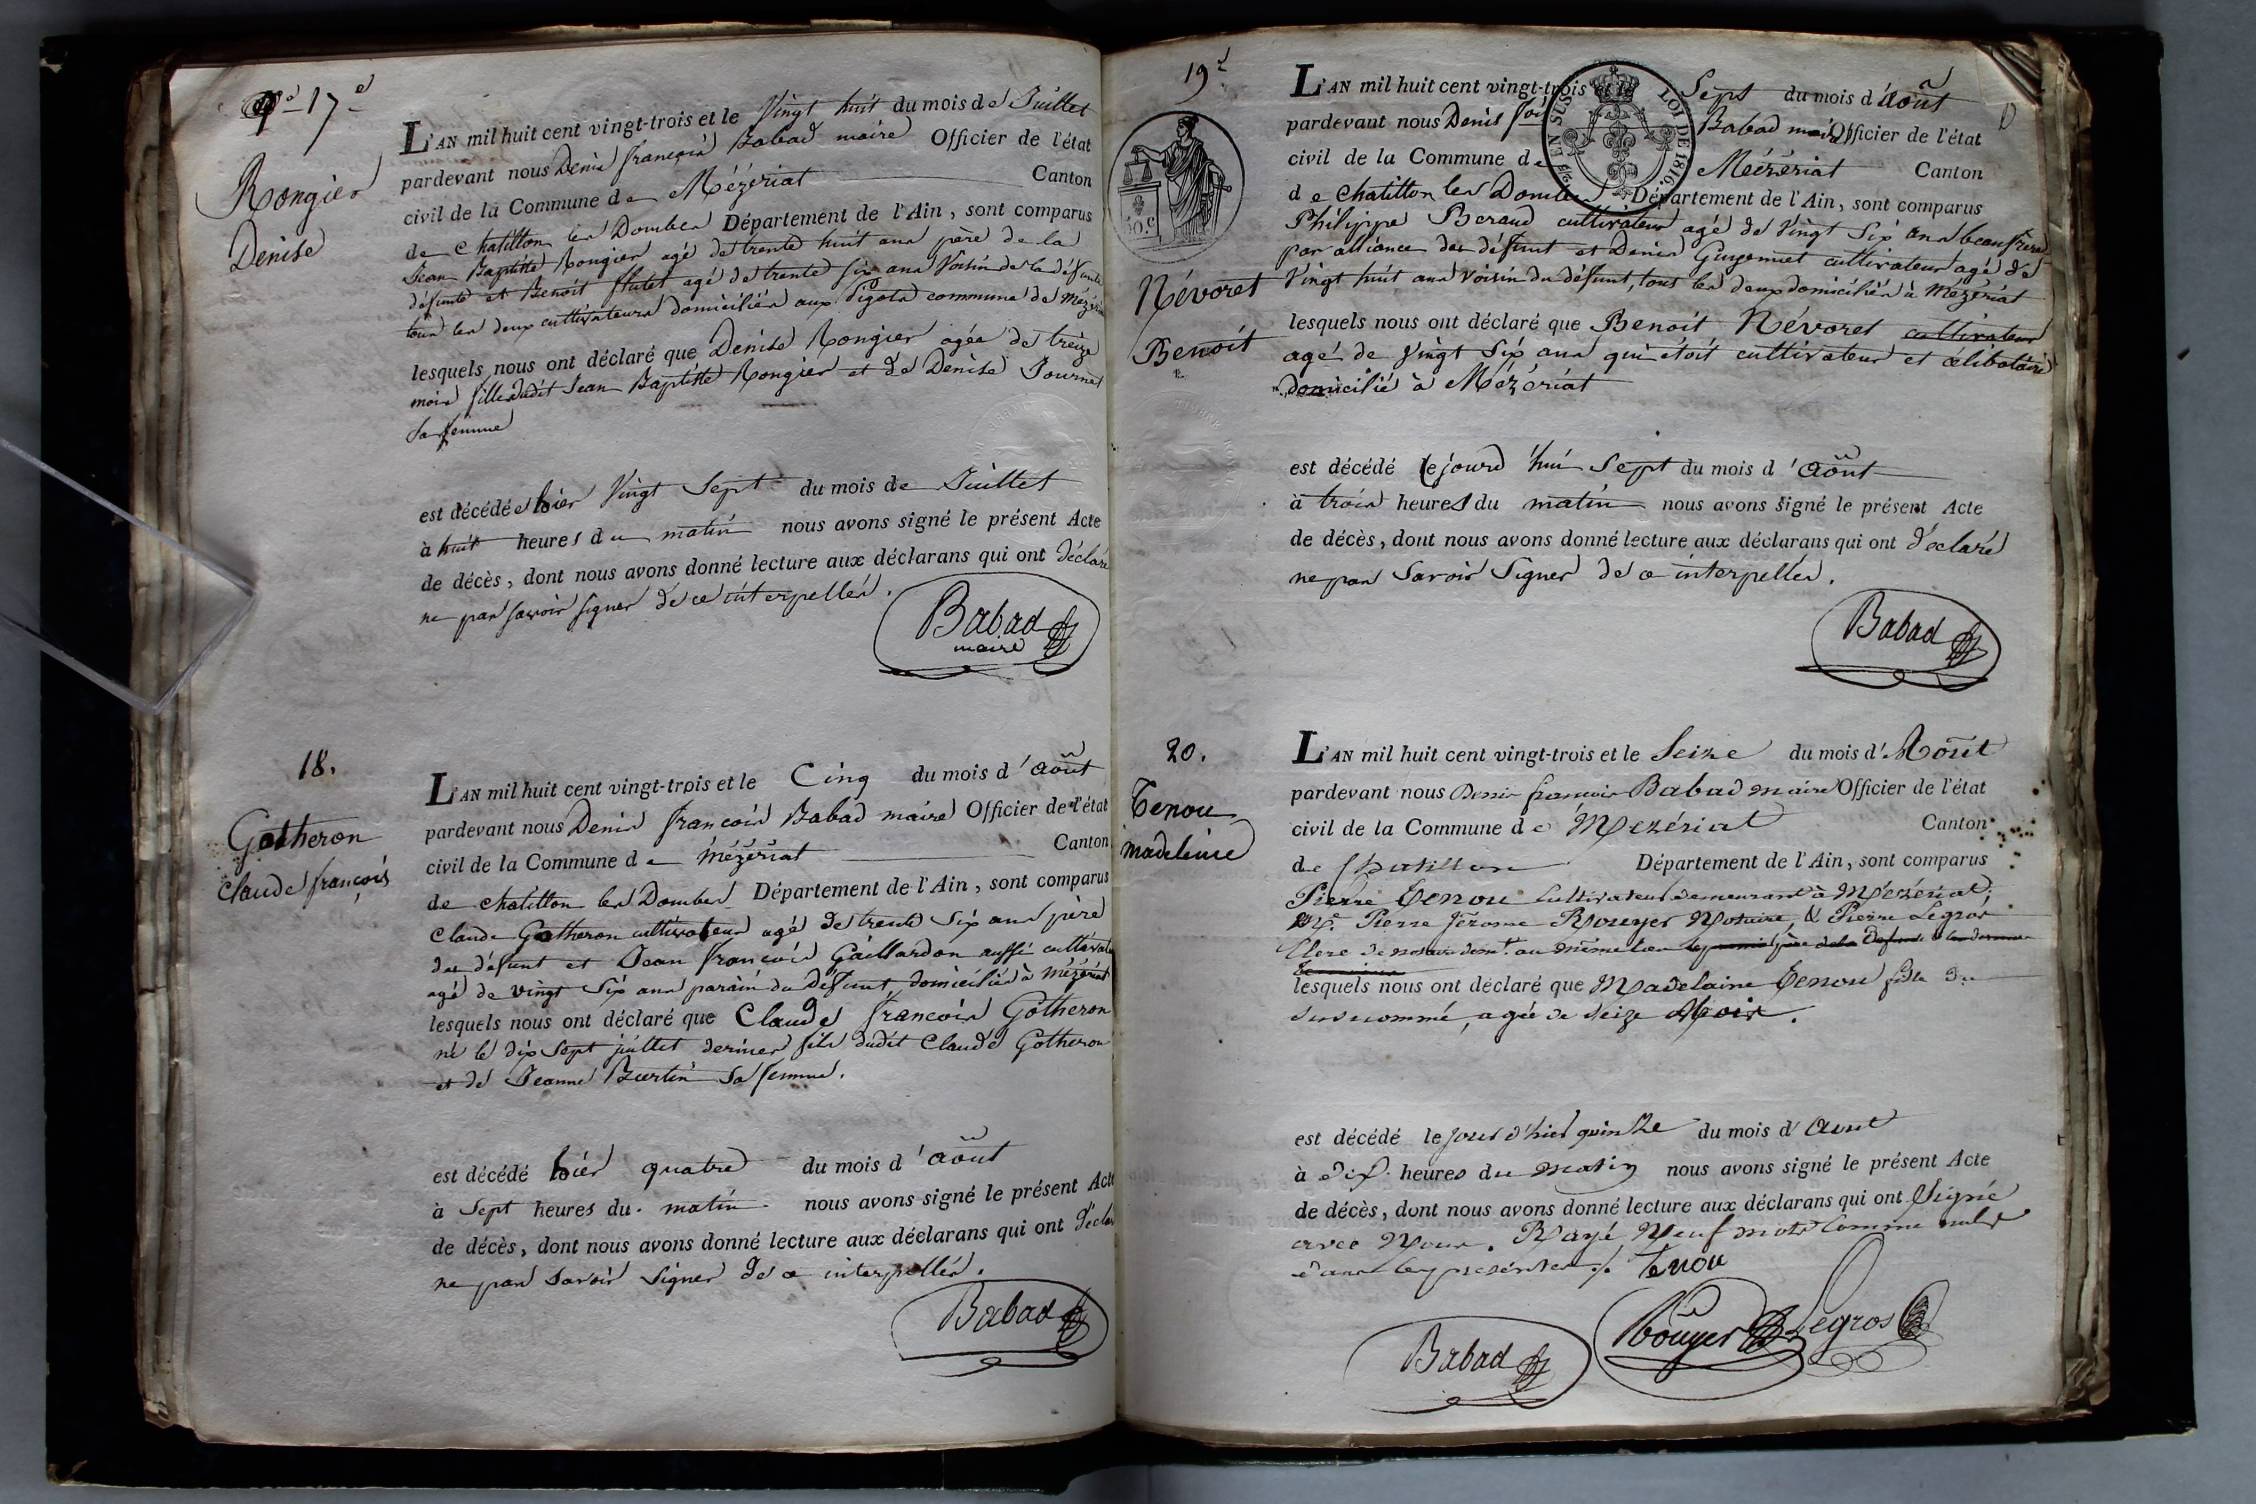 17e
Rongier
Denise
L'AN mil huit cent vingt-trois et le Vingt huit du mois de Juillet
pardevant nous Denis françois Babad maire Officier de l'état
civil de la Commune de Mézériat Canton
de chatillon les Dombes Département de l'Ain, sont comparus
Jean Baptiste Rongier agé de trente huit ans père de la
défunte et Benoit flutet agé de trente six ans Voisin de la défunte
tous les deux cultivateurs domiciliés aux commune de Mézériat
lesquels nous ont déclaré que Denise Rongier agée de treize
mois fille dudit Jean Baptiste Rongier et de Denise Journet
sa femme
est décédée hier Vingt Sept du mois de Juillet
à huit heures du matin nous avons signé le présent Acte
de décès, dont nous avons donné lecture aux déclarans qui ont déclaré
ne pas savoir signer de ce interpellés.
Babad
maire
18.
Gotheron
Claude françois
L'AN mil huit cent vingt-trois et le Cinq du mois d'août
pardevant nous Denis françois Babad maire Officier de l'état
civil de la Commune de Mézériat Canton
de chatillon les Dombes Département de l'Ain, sont comparus
Claude Gotheron cultivateur agé de trente Six ans père
du défunt et Jean françois Gaillardon aussi cultivateur
agé de vingt Six ans parain du Défunt domiciliés à Mézériat
lesquels nous ont déclaré que Claude françois Gotheron
né le dix sept juillet dernier fils dudit Claude Gotheron
et de Jeanne Burtin Sa femme.
est décédé hier quatre du mois d'août
à Sept heures du matin nous avons signé le présent Acte
de décès, dont nous avons donné lecture aux déclarans qui ont déclaré
ne pas Savoir Signer de ce interpellés.
Babad
19e
Névoret
Benoit
EN SUS
LOI DE 1816.
L'AN mil huit cent vingt-trois et le Sept du mois d'août
pardevant nous Denis Babad maire Officier de l'état
civil de la Commune de Mézériat Canton
de Chatillon les Dombes Département de l'Ain, sont comparus
Philippe Beraud cultivateur agé de Vingt Six ans beaufrère
par alliance du défunt et Denis Guyonnet cultivateur agé de
Vingt huit ans voisin du défunt, tous les deux domiciliés à Mézériat
lesquels nous ont déclaré que Benoit Névoret cultivateur
agé de Vingt Six ans qui étoit cultivateur et célibataire
domicilié à Mézériat
est décédé cejourd'hui Sept du mois d'août
à trois heures du matin nous avons signé le présent Acte
de décès, dont nous avons donné lecture aux déclarans qui ont déclaré
ne pas Savoir Signer de ce interpellés.
Babad
20.
Tenou
Madeleine
L'AN mil huit cent vingt-trois et le Seize du mois d'Août
pardevant nous Denis françois Babad maire Officier de l'état
civil de la Commune de Mézériat Canton
de Chatillon Département de l'Ain, sont comparus
Pierre Tenou Cultivateur demeurant à Mézériat,
Me. Pierre Jérome Rouyer Notaire, & Pierre Legros
Clerc de notaire demt. au même lieu
lesquels nous ont déclaré que Madelaine Tenou fille du
susnommé, agée de seize Mois.
est décédé le jour d'hier quinze du mois d'Aout
à dix heures du matin nous avons signé le présent Acte
de décès, dont nous avons donné lecture aux déclarans qui ont Signé
avec Nous. Rayé Neuf mots comme nuls
dans les présentes ./. tenou
Babad Rouyer Legros